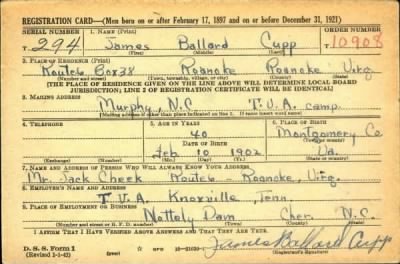 REGISTRATION CARD—(Men born on or after February 17, 1897 and on or before December 31, 1921)
SERIAL NUMBER 1. NAME (Print) ORDER NUMBER
T. 294 James Ballard Cupp T10908
(First) (Middle) (Last)
2. PLACE OF RESIDENCE (Print)
Route 6 Box 38 Roanoke Roanoke Virg.
(Number and street) (Town, township, village, or city) (County) (State)
[THE PLACE OF RESIDENCE GIVEN ON THE LINE ABOVE WILL DETERMINE LOCAL BOARD
JURISDICTION; LINE 2 OF REGISTRATION CERTIFICATE WILL BE IDENTICAL]
3. MAILING ADDRESS
Murphy, N.C T.V.A. camp.
[Mailing address if other than place indicated on line 2. If same insert word same]
4. TELEPHONE 5. AGE IN YEARS 6. PLACE OF BIRTH
40 Montgomery Co
DATE OF BIRTH (Town or county)
Feb 10 1902 Va.
(Exchange) (Number) (Mo.) (Day) (Yr.) (State or country)
7. NAME AND ADDRESS OF PERSON WHO WILL ALWAYS KNOW YOUR ADDRESS
Mr. Jack Cheek Route 6 - Roanoke, Virg.
8. EMPLOYER'S NAME AND ADDRESS
T V.A. Knoxville, Tenn.
9. PLACE OF EMPLOYMENT OR BUSINESS
Nottely Dam Cher. N.C.
(Number and street or R. F. D. number) (Town) (County) (State)
I AFFIRM THAT I HAVE VERIFIED ABOVE ANSWERS AND THAT THEY ARE TRUE.
D. S. S. Form 1
(over) James Ballard Cupp
(Registrant's signature)